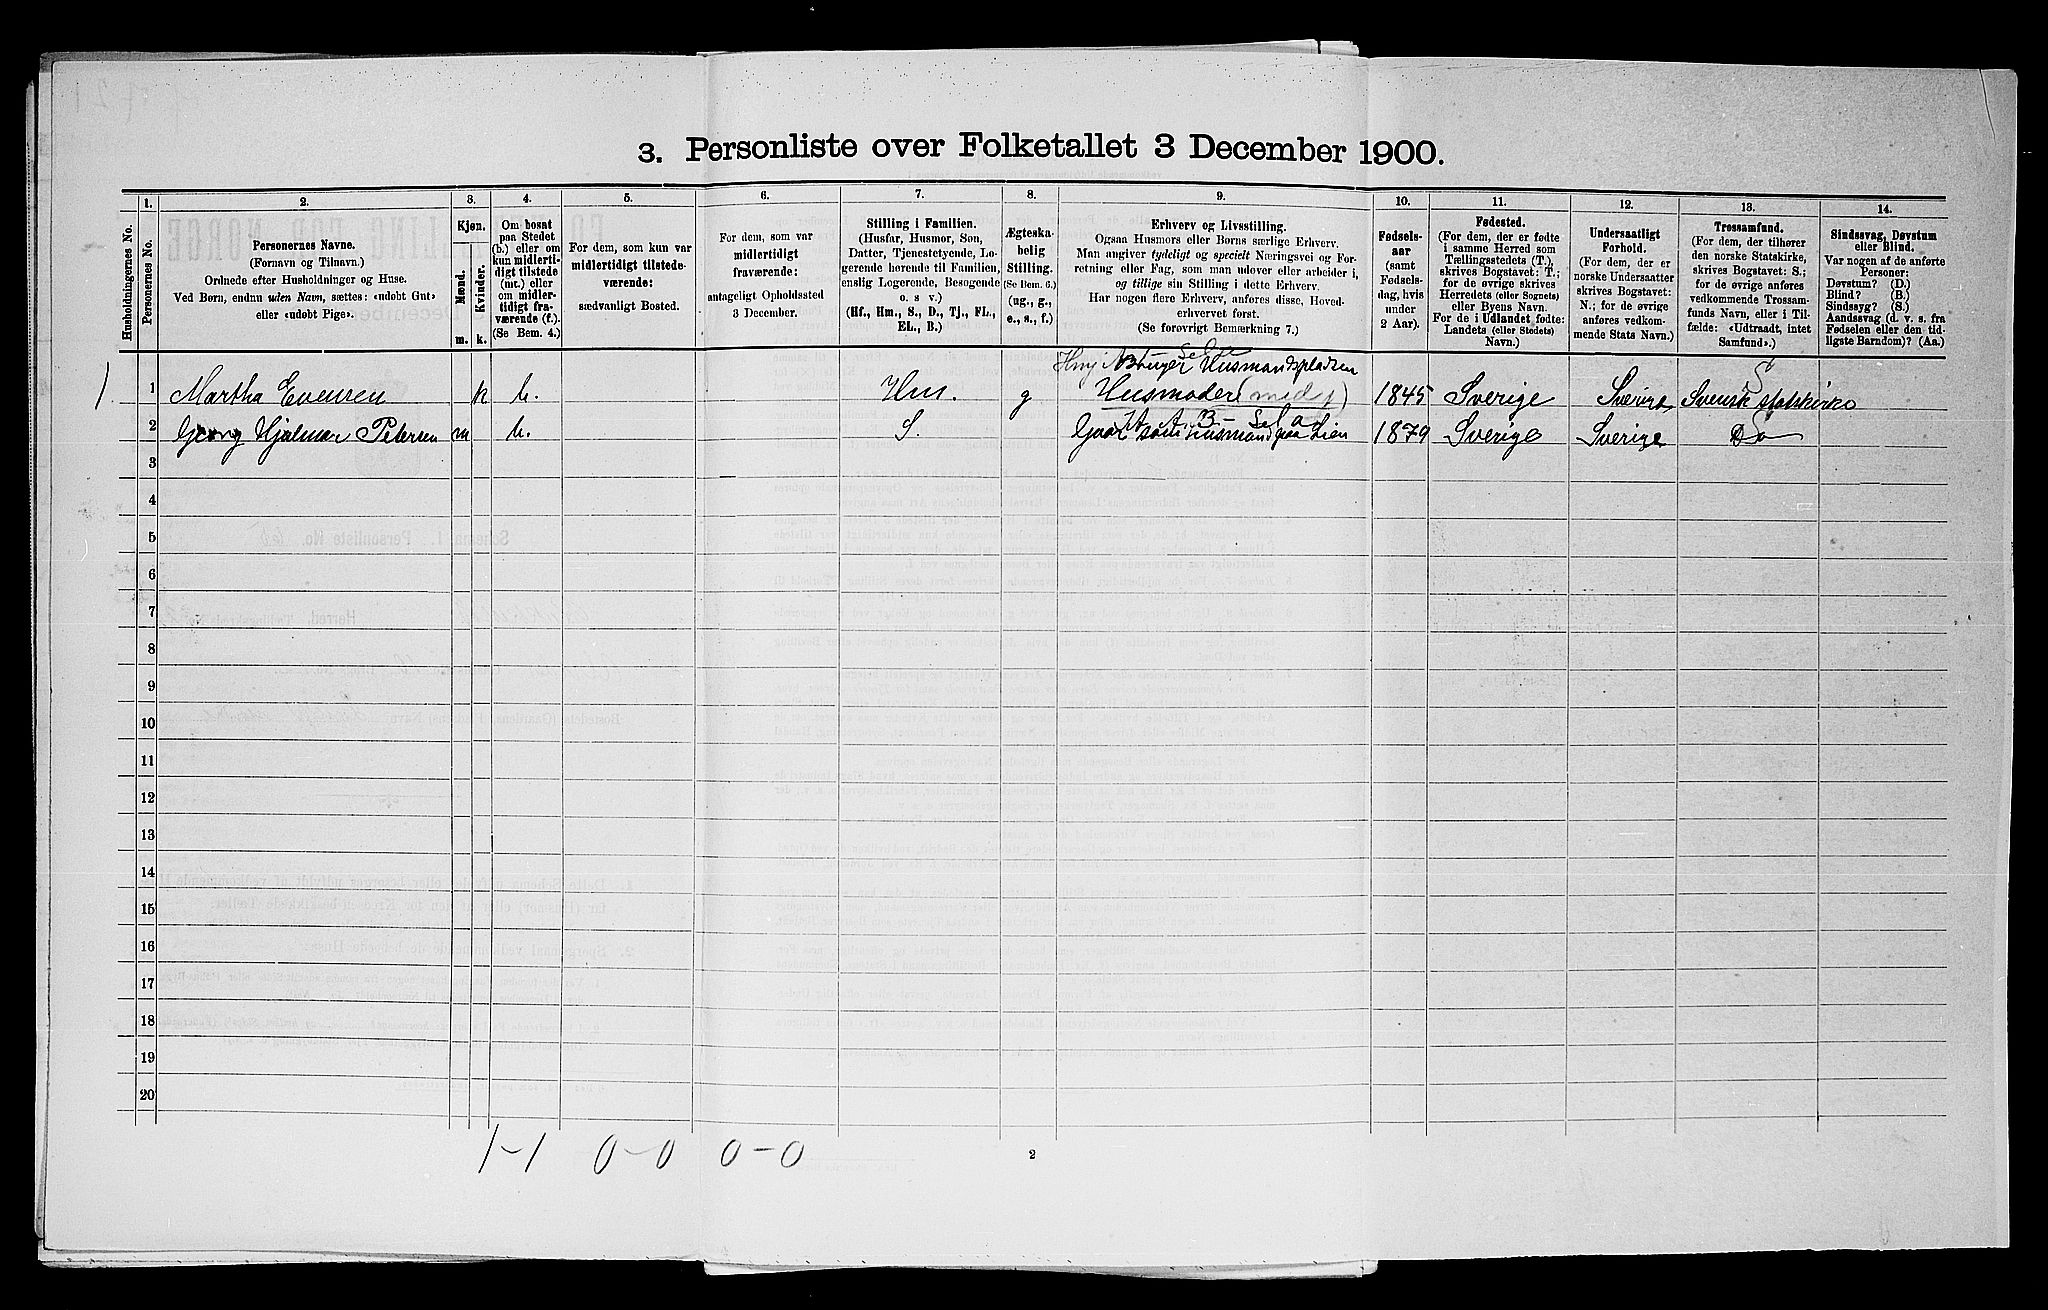 3. Personliste over Folketallet 3 December 1900.
Husholdningernes No.
1.
Personernes No.
2.
Personernes Navne.
(Fornavn og Tilnavn.)
Ordnede efter Husholdninger og Huse.
Ved Børn, endnu uden Navn, sættes: «udøbt Gut»
eller «udøbt Pige».
3.
Kjøn.
Mænd.
Kvinder.
m. k.
4.
Om bosat
paa Stedet
(b.) eller om
kun midlerti-
digt tilstede
(mt.) eller
om midler-
tidigt fra-
værende (f.).
(Se Bem. 4.)
5.
For dem, som kun var
midlertidigt tilstede-
værende:
sædvanligt Bosted.
6.
For dem, som var
midlertidigt
fraværende:
antageligt Opholdssted
3 December.
7.
Stilling i Familien.
(Husfar, Husmor, Søn,
Datter, Tjenestetyende, Lo-
gerende hørende til Familien,
enslig Logerende, Besøgende
o. s v.)
(Hf., Hm., S., D., Tj., FL.,
EL., B.)
8.
Ægteska-
belig
Stilling.
(Se Bem. 6.)
(ug., g.,
e., s., f.)
9.
Erhverv og Livsstilling.
Ogsaa Husmors eller Børns særlige Erhverv.
Man angiver tydeligt og specielt Næringsvei og For-
retning eller Fag, som man udøver eller arbeider i,
og tillige sin Stilling i dette Erhverv.
Har nogen flere Erhverv, anføres disse, Hoved-
erhvervet først.
(Se forøvrigt Bemærkning 7.)
10.
Fødsels-
aar
(samt
Fødsels-
dag, hvis
under
2 Aar).
11.
Fødested.
(For dem, der er fødte
i samme Herred som
Tællingsstedets (T.),
skrives Bogstavet: T.;
for de øvrige skrives
Herredets (eller Sognets)
eller Byens Navn.
For de i Udlandet fødte:
Landets (eller Stedets)
Navn.)
12.
Undersaatligt
Forhold.
(For dem, der er
norske Undersaatter
skrives Bogstavet:
N.; for de øvrige
anføres vedkom-
mende Stats Navn.)
13.
Trossamfund.
(For dem, der tilhører
den norske Statskirke,
skrives Bogstavet: S.;
for de øvrige anføres
vedkommende Trossam-
funds Navn, eller i Til-
fælde: «Udtraadt, intet
Samfund».)
14.
Sindssvag, Døvstum
eller Blind.
Var nogen af de anførte
Personer:
Døvstum? (D.)
Blind? (B.)
Sindssyg? (S.)
Aandssvag (d. v. s. fra
Fødselen eller den tid-
ligste Barndom)? (Aa.)
Husmandspladsen
1. 1 Martha Evensen k b. Hm. g Husmoder (med j) 1845 Sverige Sverige Svensk statskirke
S
2 Georg Hjalmar Petersen m b. S. Husmand paa Lien 1879 Sverige Sverige Do
3
4
5
6
7
8
9
10
11
12
13
14
15
16
17
18
19
20
1-1 0-0 0-0
2